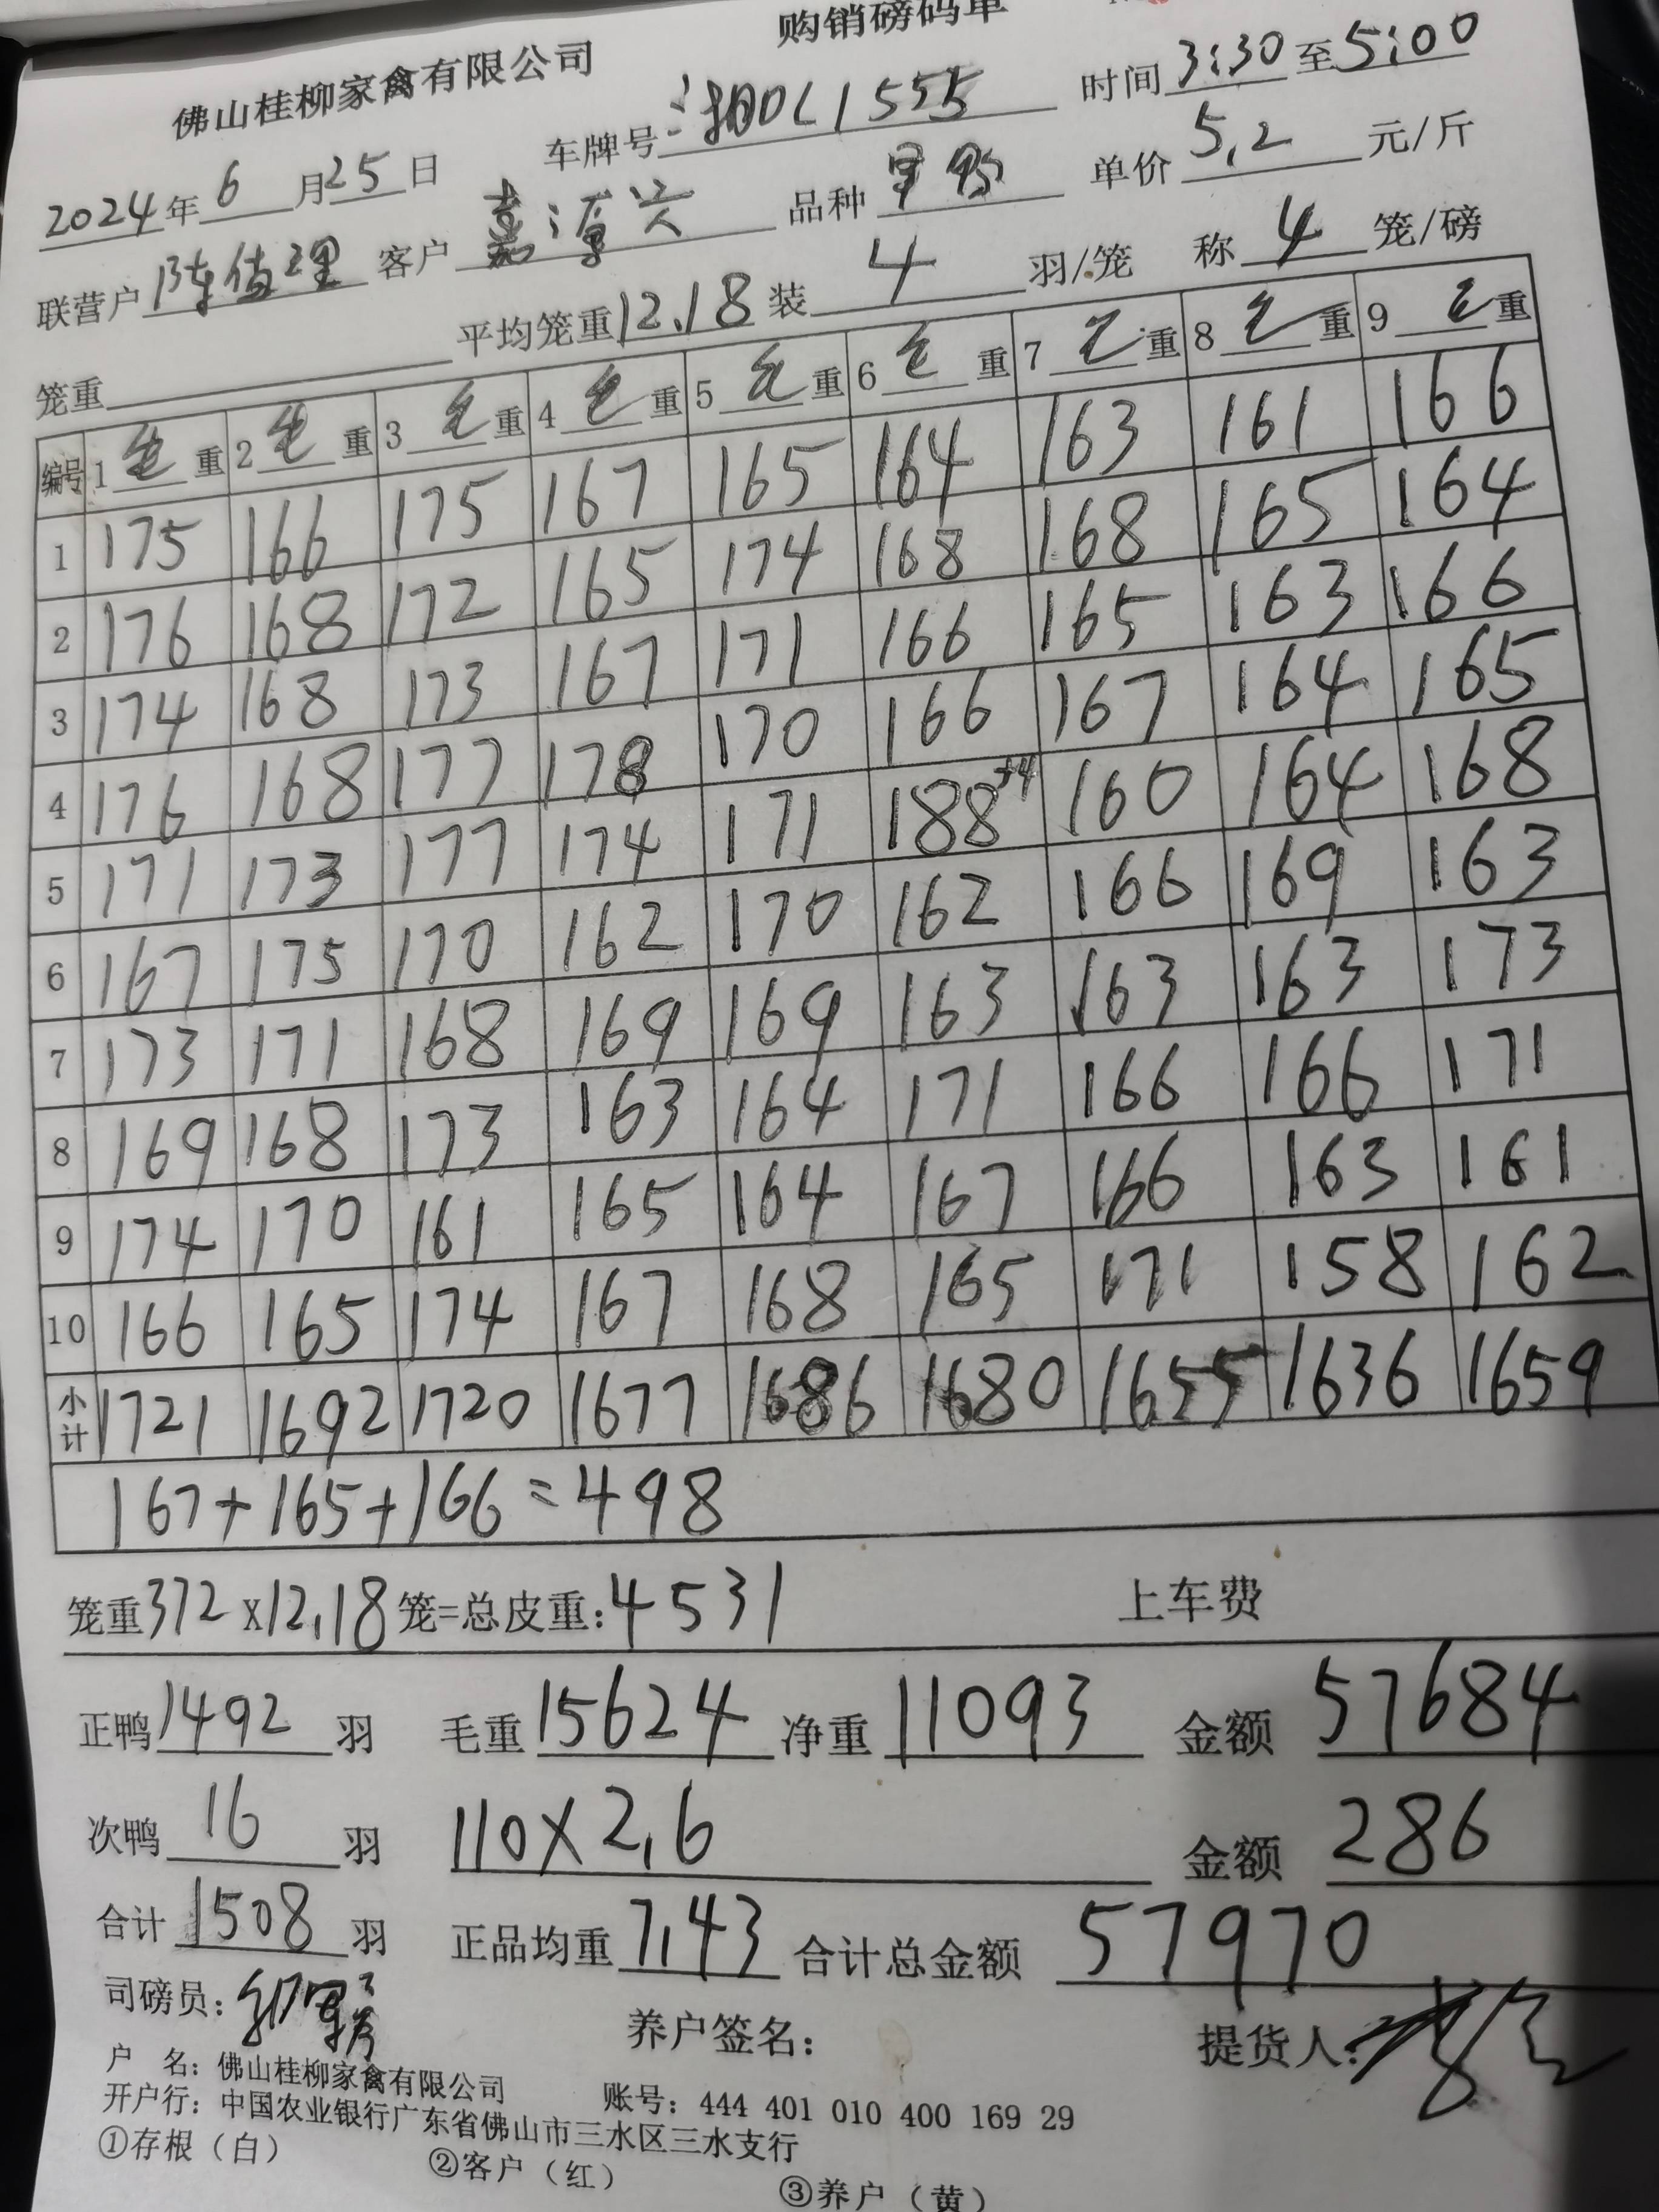 购销磅码单
佛山桂柳家禽有限公司
2024年 6 月 25 日 车牌号 湘DL1555 时间 3:30 至 5:00
联营户 陈值理 客户 嘉源兴 品种 单价 5.2 元/斤
笼重 平均笼重 12.18 装 4 羽/笼 称 4 笼/磅
编号 1 毛 重 2 毛 重 3 毛 重 4 毛 重 5 毛 重 6 毛 重 7 毛 重 8 毛 重 9 毛 重
1 175 166 175 167 165 164 163 161 166
2 176 168 172 165 174 168 168 165 164
3 174 168 173 167 171 166 165 163 166
4 176 168 177 178 170 166 167 164 165
5 171 173 177 174 171 188+4 160 164 168
6 167 175 170 162 170 162 166 169 163
7 173 171 168 169 169 163 163 163 173
8 169 168 173 163 164 171 166 166 171
9 174 170 161 165 164 167 166 163 161
10 166 165 174 167 168 165 171 158 162
小计 1721 1692 1720 1677 1686 1680 1655 1636 1659
167+165+166=498
笼重 372 x 12.18 笼=总皮重: 4531 上车费
正鸭 1492 羽 毛重 15624 净重 11093 金额 57684
次鸭 16 羽 110×2.6 金额 286
合计 1508 羽 正品均重 7.43 合计总金额 57970
司磅员: 养户签名: 提货人:
户 名: 佛山桂柳家禽有限公司 账号: 444 401 010 400 169 29
开户行: 中国农业银行广东省佛山市三水区三水支行
①存根（白） ②客户（红） ③养户（黄）